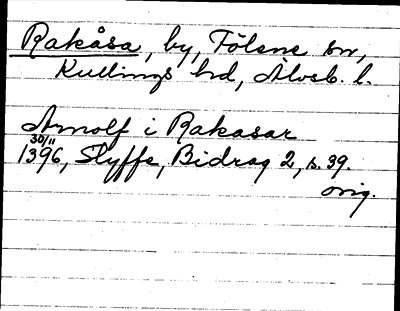 Rakåsa, by, Fölene sn,
Kullings hd, Älvsb. l.
Arnolf i Rakasar
30/11
1396, Styffe, Bidrag 2, s. 39.
orig.